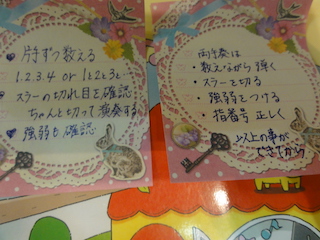 片手ずつ数える
1.2.3.4 or 1と2と3と…
スラーの切れ目を確認
ちゃんと切って演奏する
強弱も確認
両手奏は
・数えながら弾く
・スラーを切る
・強弱をつける
・指番号 正しく
以上の事が
できてから